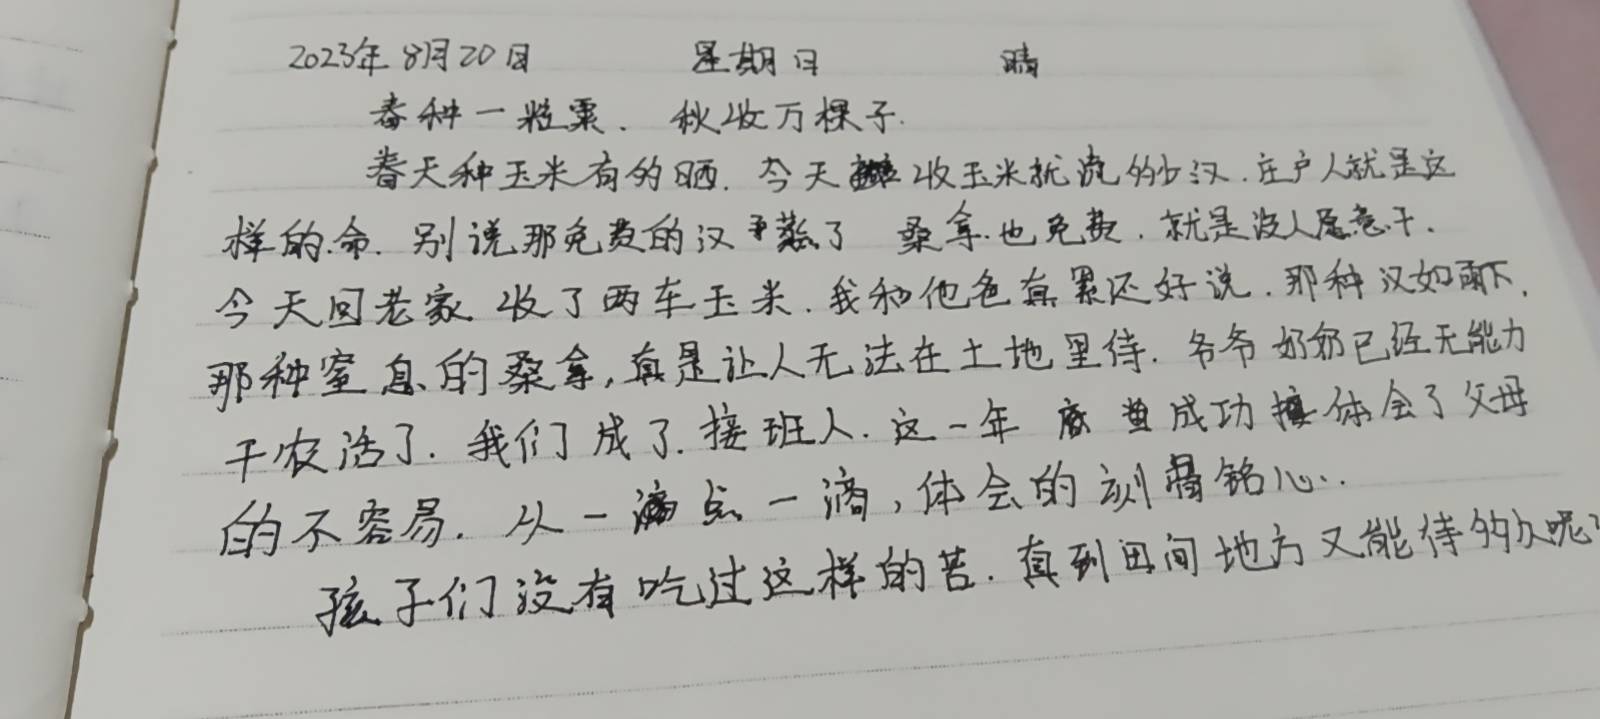 2023年8月20日 星期日 晴
春种一粒粟. 秋收万棵子.
春天种玉米有的晒. 今天收玉米就流的少汉. 庄户人就是这
样的命. 别说那免费的汉蒸了 桑拿也免费. 就是没人愿意干.
今天回老家收了两车玉米. 我和他爸真累还好说. 那种汉如雨下,
那种窒息的桑拿,真是让人无法在土地里待. 爷爷奶奶已经无能力
干农活了. 我们成了接班人. 这一年 成功体会了父母
的不容易. 从一点一滴,体会的刻骨铭心..
孩子们没有吃过这样的苦. 真到田间地方又能待多久呢?